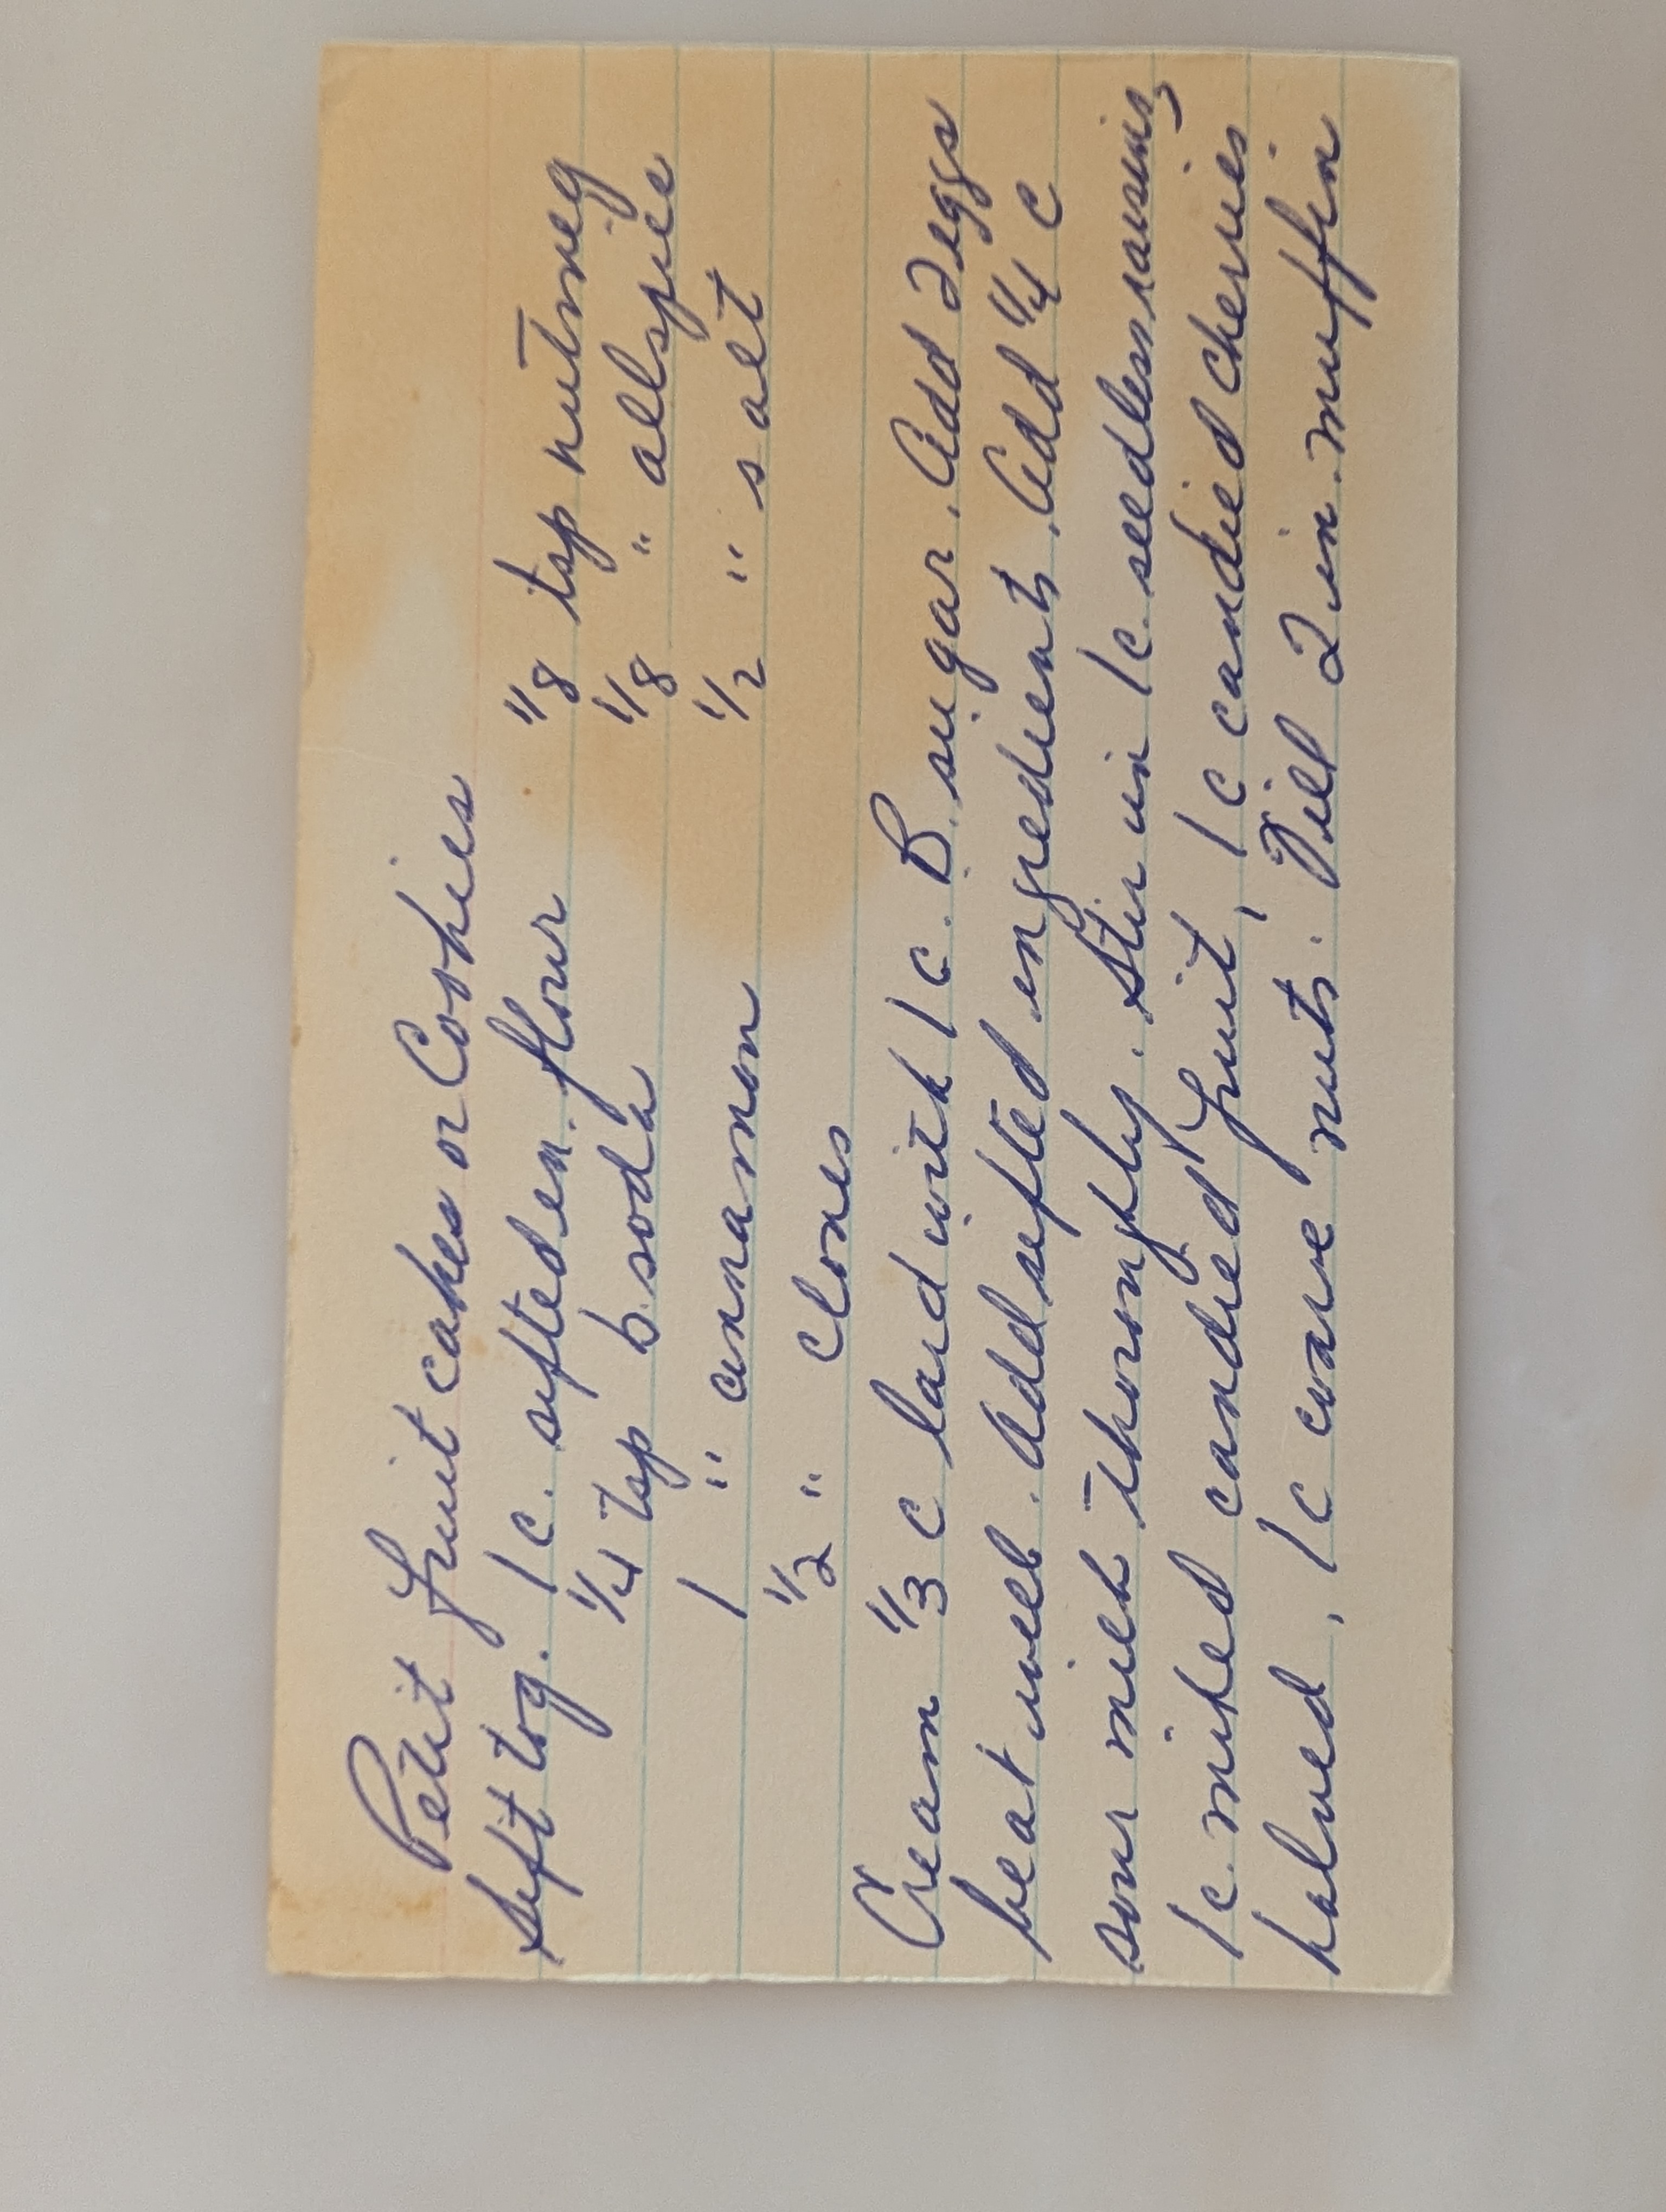 Petit Fruit cakes or Cookies
Sift tog. 1 c. sifted en. flour 1/8 tsp nutmeg
1/4 tsp b. soda 1/8 " allspice
1 " cinnamon 1/2 " salt
1/2 " cloves
Cream 1/3 c lard with 1 c. B. sugar. Add 2 eggs
beat well. Add sifted ingredients. Add 1/4 c
sour milk thoroughly. Stir in 1 c. seedless raisins,
1 c. mixed candied fruit, 1 c candied cherries
halved, 1 c coarse nuts. Fill 2 in. muffin